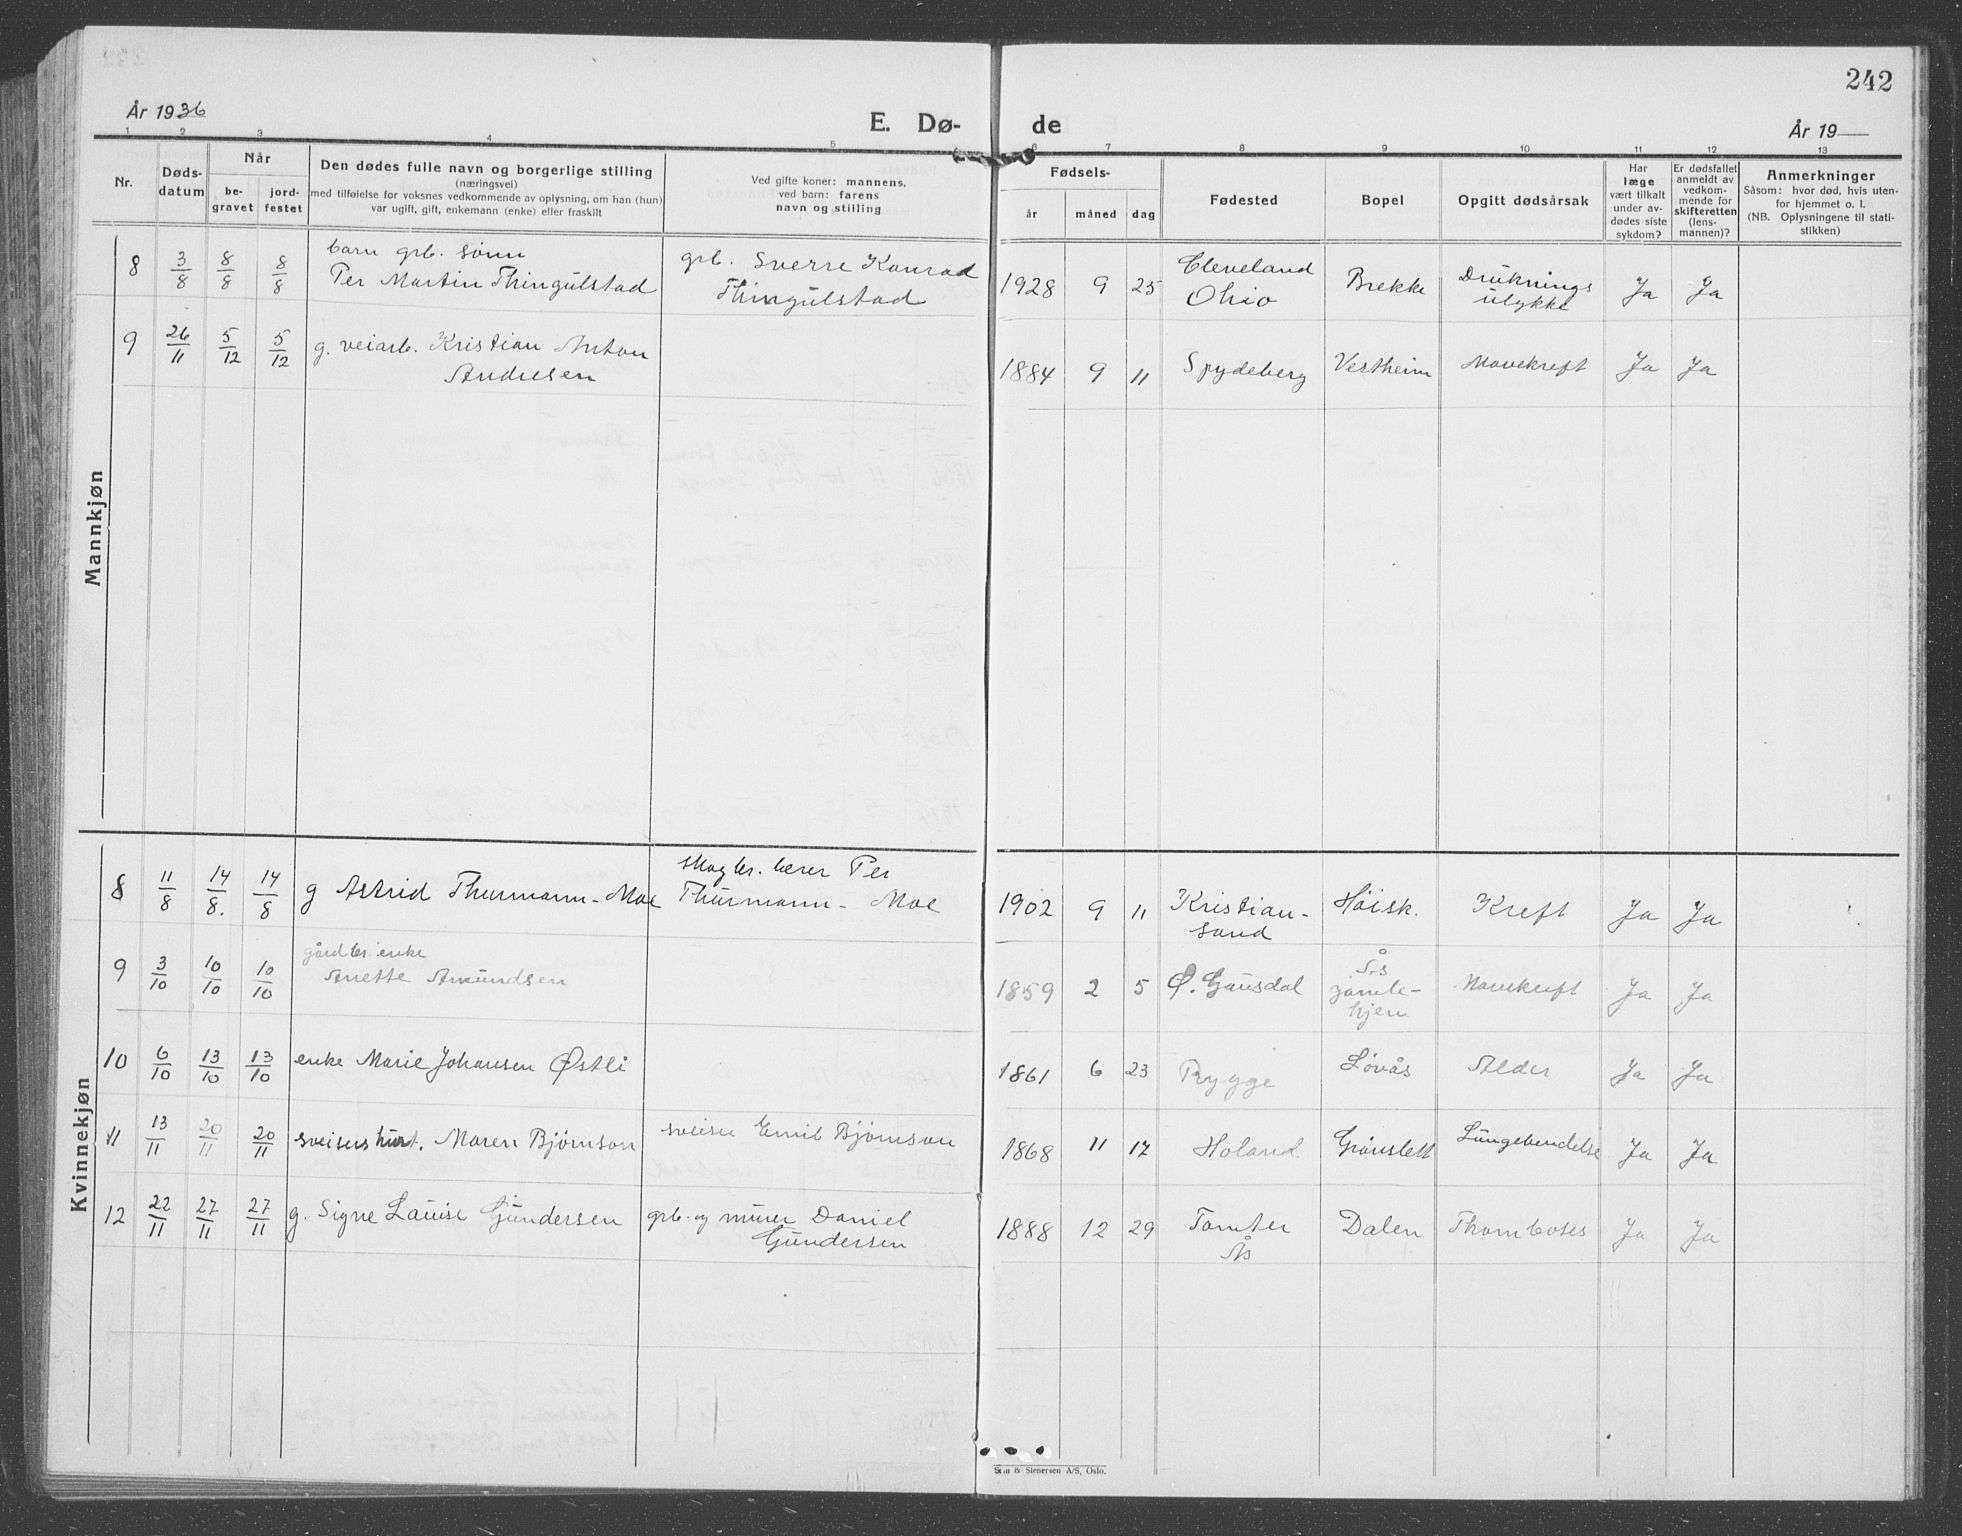 242
År 1936
E. Dø-
de
År 19
1 2 3 4 5 6 7 8 9 10 11 12 13
Nr.
Døds-
datum
Når
be-
gravet
jord-
festet
Den dødes fulle navn og borgerlige stilling
(næringsvei)
med tilføielse for voksnes vedkommende av oplysning, om han (hun)
var ugift, gift, enkemann (enke) eller fraskilt
Ved gifte koner: mannens,
ved barn: farens
navn og stilling
Fødsels-
år
måned
dag
Fødested
Bopel
Opgitt dødsårsak
Har
læge
vært tilkalt
under av-
dødes siste
sykdom?
Er dødsfallet
anmeldt av
vedkom-
mende for
skifteretten
(lens-
mannen)?
Anmerkninger
Såsom: hvor død, hvis uten-
for hjemmet o. l.
(NB. Oplysningene til stati-
stikken)
Mannkjøn
8 3/8 8/8 8/8
barn grb. sønn
Per Martin Thingulstad
grb. Sverre Konrad
Thingulstad
1928 9 25
Cleveland
Ohio
Brekke
Druknings
ulykke
Ja Ja
9 26/11 5/12 5/12
g. veiarb. Kristian Anton
Andresen
1884 9 11 Spydeberg Vestheim Mavekreft Ja Ja
Kvinnekjøn
8 11/8 14/8. 14/8
g Astrid Thurmann-Moe
skogbr. lærer Per
Thurmann- Moe
1902 9 11
Kristian-
sand
Høisk. Kreft Ja Ja
9 3/10 10/10 10/10
gårdbr. enke
Anette Amundsen
1859 2 5 Ø. Gausdal
Ås
gamle-
hjem
Mavekreft Ja Ja
10 6/10 13/10 13/10 enke Marie Johansen Østli
1861 6 23 Rygge Løvås Alder Ja Ja
11 13/11 20/11 20/11 sveisers hust. Maren Bjørnson
sveiser Emil Bjørnson
1868 11 17 Høland Grønslett Lungebendelse Ja Ja
12 22/11 27/11 27/11 g. Signe Lauise Gundersen
grb. og murer Daniel
Gundersen
1888 12 29
Tomter
Ås
Dalen Thomboses Ja Ja
& Stenersen A/S, Oslo.